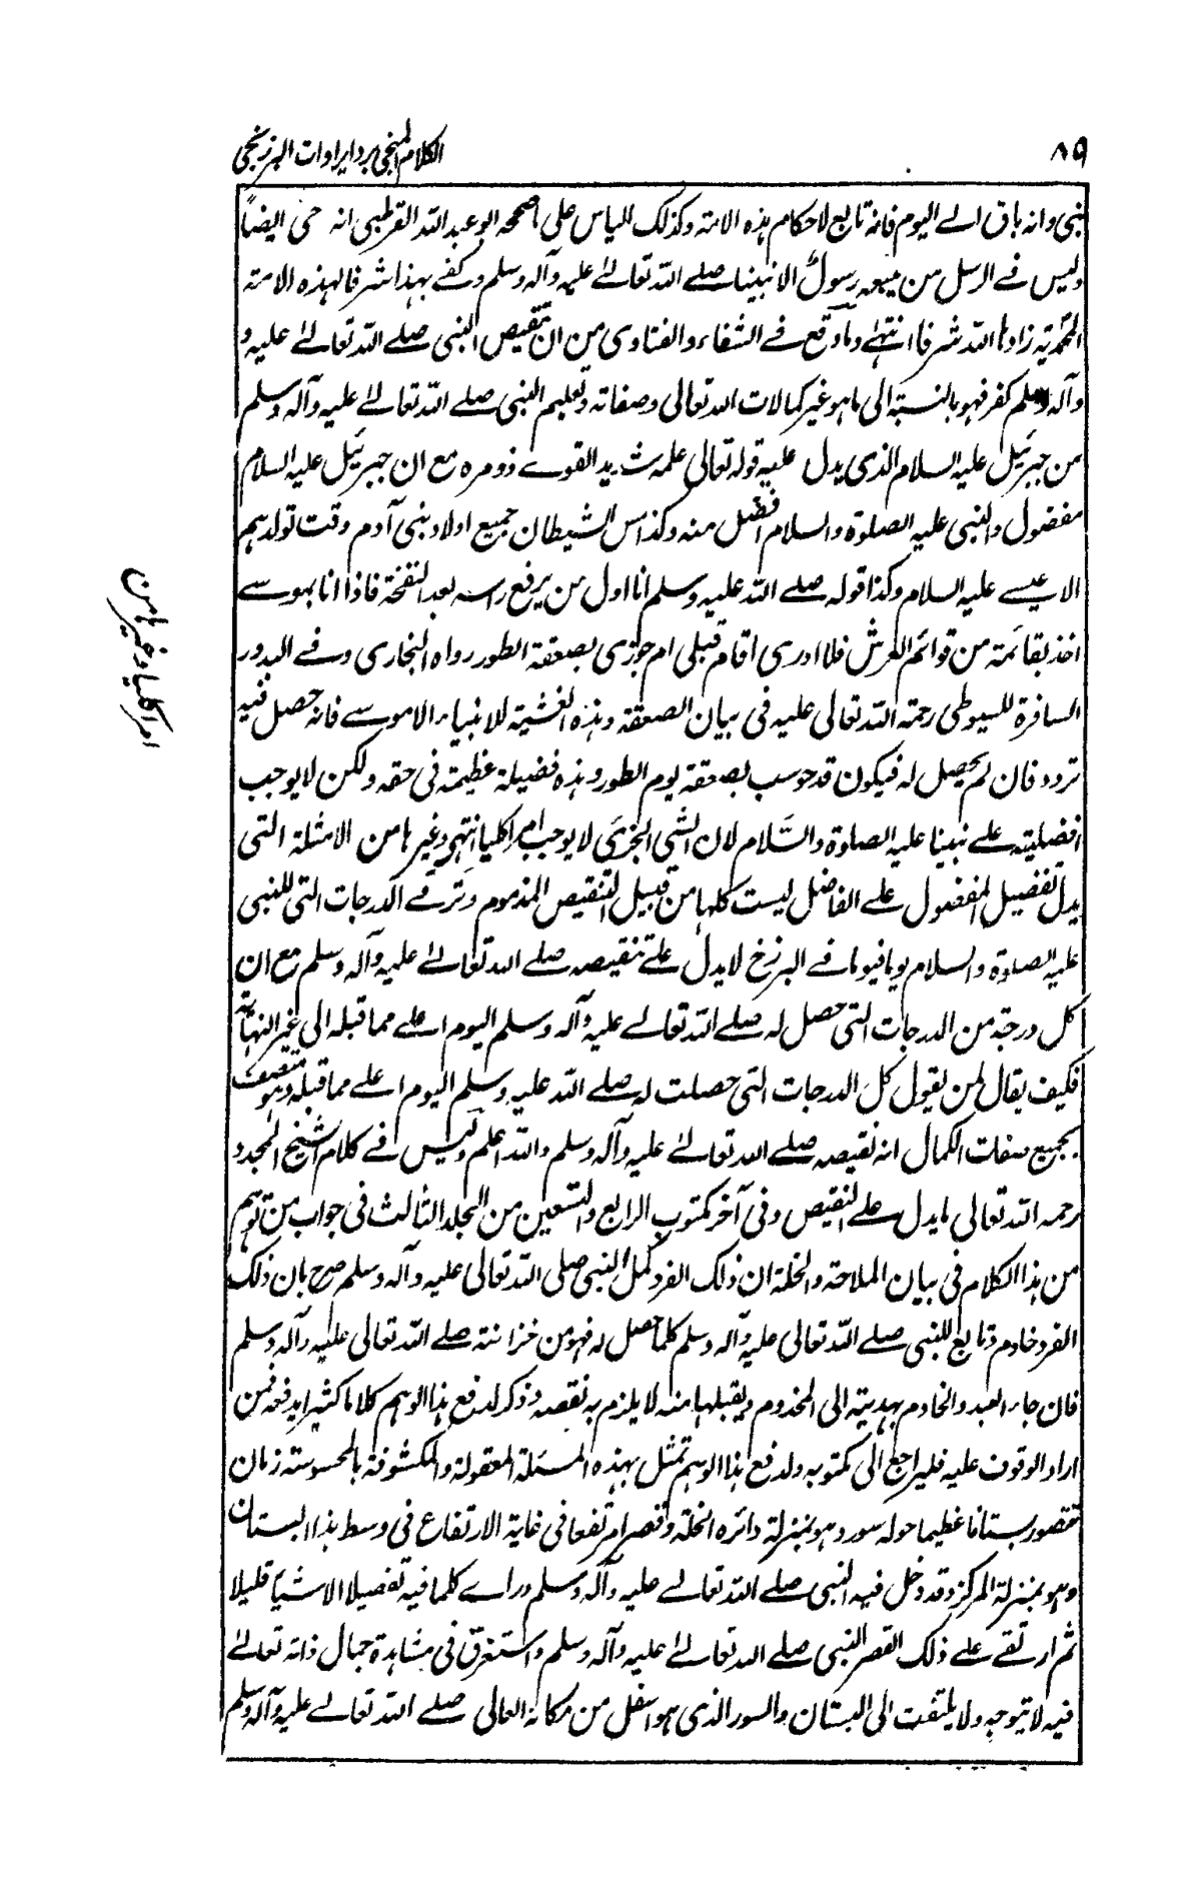 ٨٩
الكلام المنجى برد ايرادات البرزنجى
نبى وانه باق الى اليوم فانه تابع لاحكام هذه الامة وكذلك الياس على ما صححه ابو عبد الله القرطبى انه حى ايضاً
وليس فى الرسل من يتبعه رسولٌ الا نبينا صلى الله تعالىٰ عليه وآله وسلم وكفى بهذا شرفا لهذه الامة
المحمدية زادها الله شرفا انتهىٰ وما وقع فى الشفاء والفتاوى من ان تنقيص النبى صلى الله تعالىٰ عليه و
وآله وسلم كفر فهو بالنسبة الى ما هو غير كمالات الله تعالى وصفاته وتعليم النبى صلى الله تعالىٰ عليه وآله وسلم
من جبرئيل عليه السلام الذى يدل عليه قوله تعالى علمه شديد القوى ذو مره مع ان جبرئيل عليه السلام
مفضول والنبى عليه الصلوة والسلام افضل منه وكذا مس الشيطان جميع اولاد بنى آدم وقت تولدهم
الا عيسى عليه السلام وكذا قوله صلى الله عليه وسلم انا اول من يرفع راسه بعد النفخة فاذا انا بموسى
اخذ بقائمة من قوائم العرش فلا ادرى اقام قبلى ام جوزى بصعقة الطور رواه البخارى وفى البدور
السافرة للسيوطى رحمة الله تعالى عليه فى بيان الصعقة وهذه الغشية للانبياء الا موسى فانه حصل فيه
تردد فان لم يحصل له فيكون قد حوسب بصعقة يوم الطور وهذه فضيلة عظيمة فى حقه ولكن لا يوجب
افضليته على نبينا عليه الصلوة والسّلام لان الشئ الجزئى لا يوجب امرا كليا انتهى وغيرها من الامثلة التى
يدل تفضيل المفضول على الفاضل ليست كلها من قبيل التنقيص المذموم وترقى الدرجات التى للنبى
عليه الصلوة والسلام يوما فيوما فى البرزخ لا يدل على تنقيصه صلى الله تعالىٰ عليه وآله وسلم مع ان
كل درجة من الدرجات التى حصل له صلى الله تعالى عليه وآله وسلم اليوم اعلى مما قبله الى غير النهاية
فكيف يقال لمن يقول كل الدرجات التى حصلت له صلى الله عليه وسلم اليوم اعلى مما قبله وهو متصف
بجميع صفات الكمال انه نقيصه صلى الله تعالىٰ عليه وآله وسلم والله اعلم وليس فى كلام الشيخ المجدد
رحمه الله تعالى ما يدل على النقيص وفى آخر مكتوب الرابع والتسعين من المجلد الثالث فى جواب من توهم
من هذا الكلام فى بيان الملاحة والخلة ان ذلك الفرد كمل النبى صلى الله تعالى عليه وآله وسلم صرح بان ذلك
الفرد خادم وتابع للنبى صلى الله تعالى عليه وآله وسلم كلما حصل له فهو من خزانته صلى الله تعالى عليه وآله وسلم
فان جاء العبد والخادم بهدية الى المخدوم ويقبلها منه لا يلزم به نقصه وذكر لدفع هذا الوهم كلاما كثيرا يدفعه فمن
اراد الوقوف عليه فليراجع الى مكتوبه ولدفع هذا الوهم تمثل بهذه المسئلة المعقولة والمكشوفة بالمحسوسة زمان
تتصور بستانا عظيما حوله سور وهو بمنزلة دائره الخلة وقصر امرتفعا فى غاية الارتفاع فى وسط هذا البستان
وهو بمنزلة المركز وقد دخل فيه النبى صلى الله تعالى عليه وآله وسلم وراى كلما فيه تفصيلا الا شيأ قليلا
ثم ارتقى على ذلك القصر النبى صلى الله تعالىٰ عليه وآله وسلم واستغرق فى مشاهدة جمال ذاته تعالىٰ
فيه لا يتوجه ولا يلتفت الى البستان والسور الذى هو اسفل من مكانه العالى صلى الله تعالى عليه وآله وسلم
امرا كليا وغيرها من